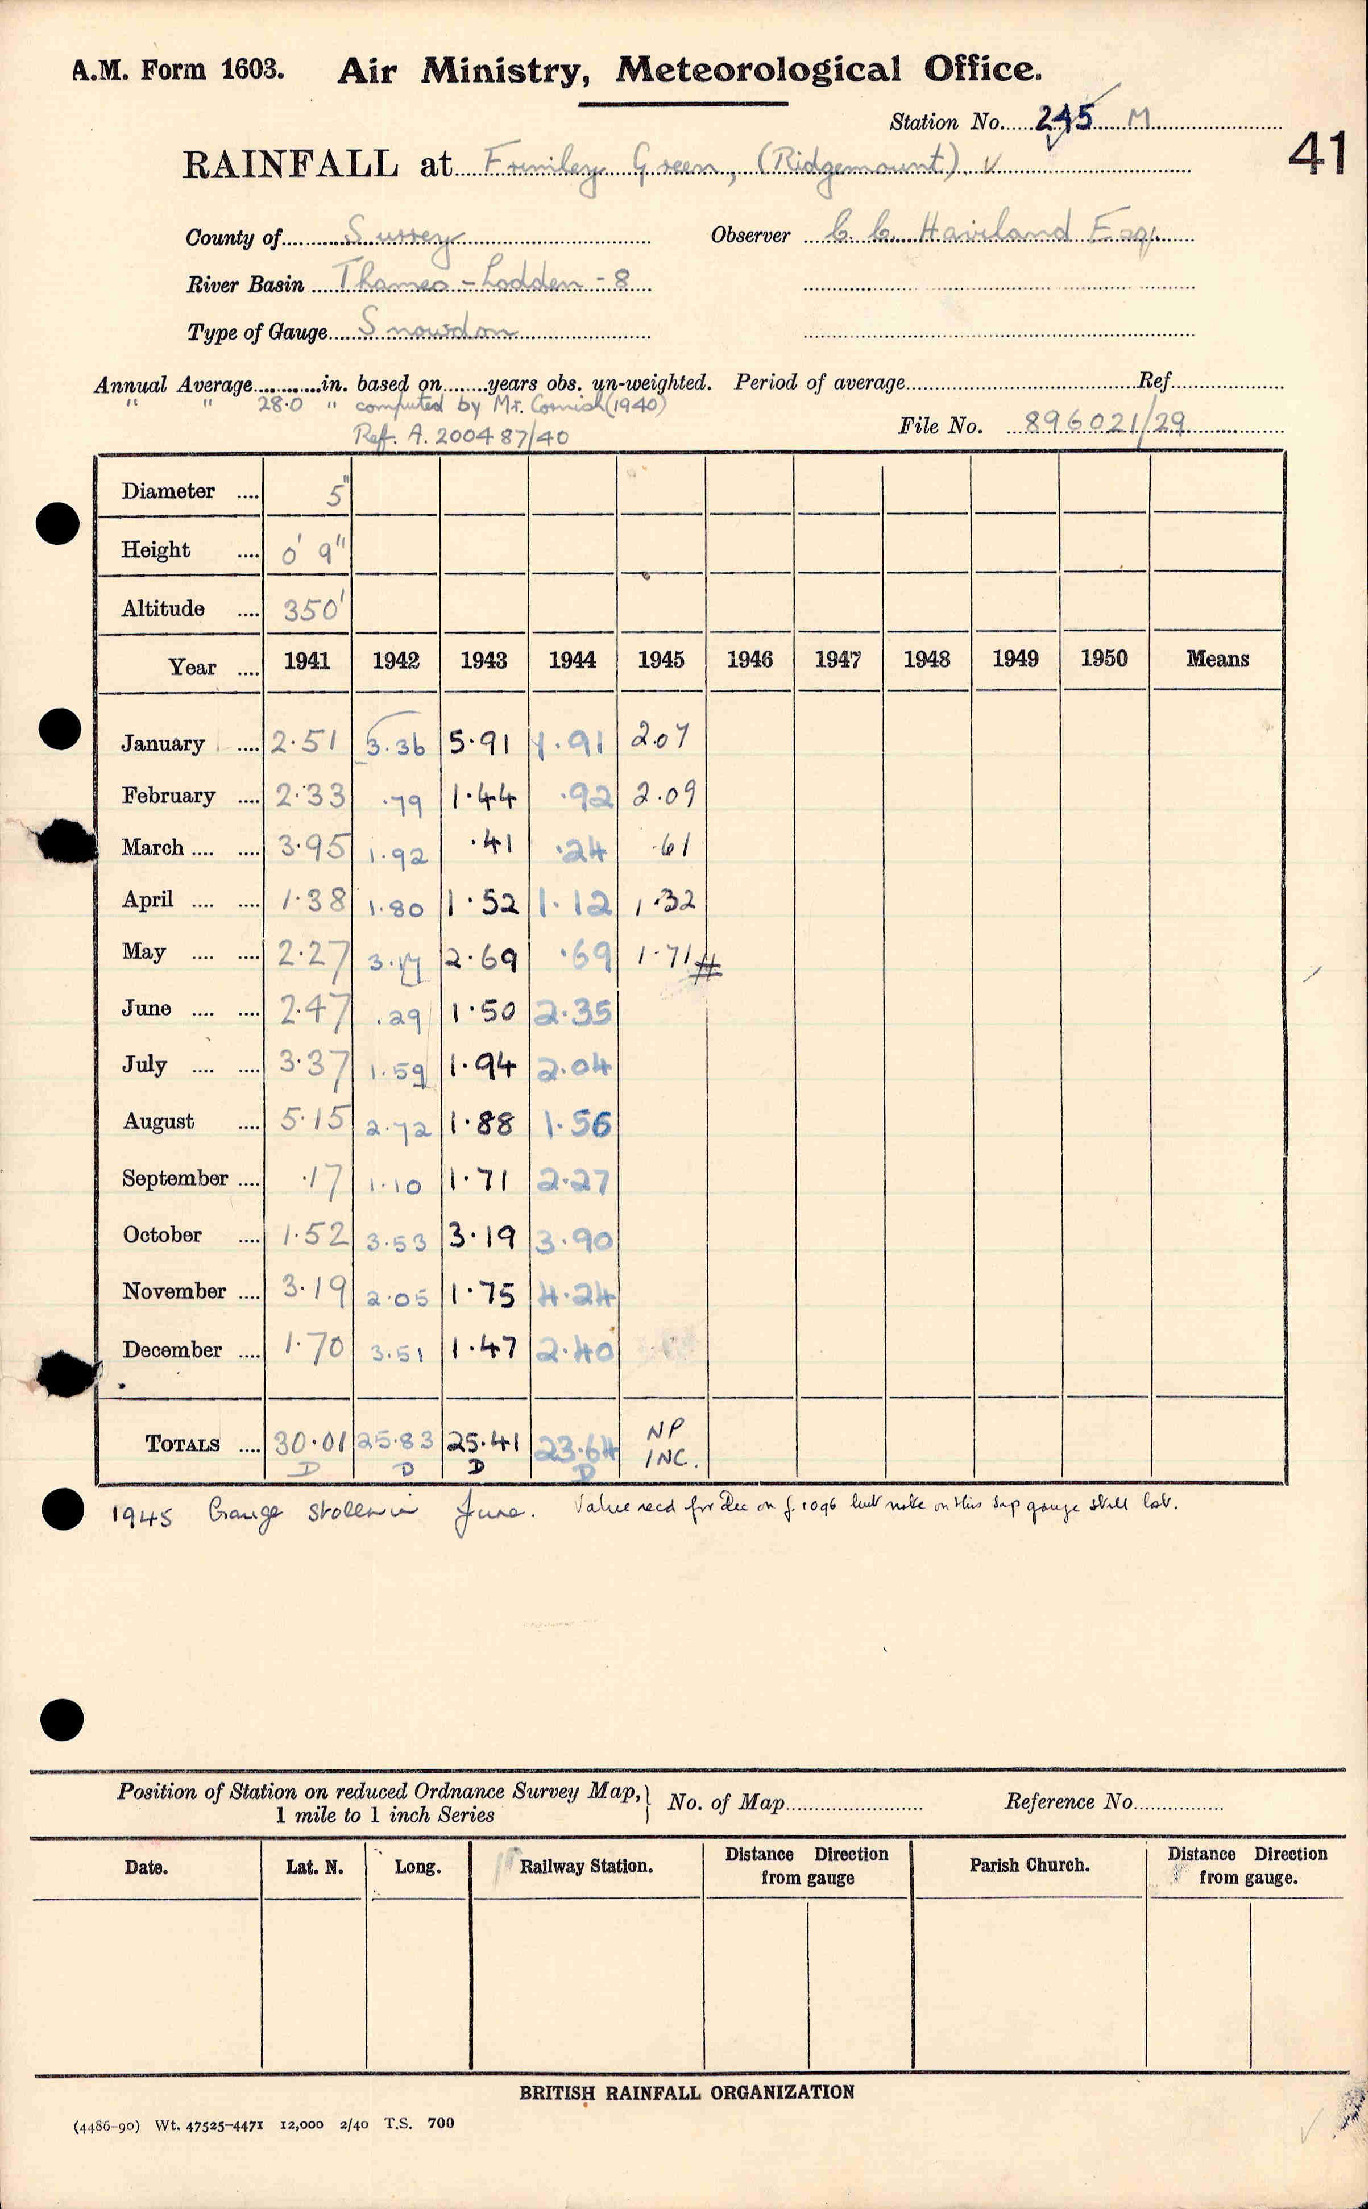 A.M. Form 1603. Air Ministry, Meteorological Office.
Station No. 245 M
41
RAINFALL at Frimley Green, (Ridgemount). ✓
County of Surrey Observer C. C. Haviland Esq.
River Basin Thames - Lodden - 8
Type of Gauge Snowdon
Annual Average in. based on years obs. un-weighted. Period of average Ref.
" " 28.0 " computed by Mr. Cornish (1940)
Ref. A. 200487/40
File No. 896021/29
Diameter 5"
Height 0' 9"
Altitude 350'
Year 1941 1942 1943 1944 1945 1946 1947 1948 1949 1950 Means
January 2.51 3.36 5.91 1.91 2.07
February 2.33 .79 1.44 .92 2.09
March 3.95 1.92 .41 .24 .61
April 1.38 1.80 1.52 1.12 1.32
May 2.27 3.17 2.69 .69 1.71 #
June 2.47 .29 1.50 2.35
July 3.37 1.59 1.94 2.04
August 5.15 2.72 1.88 1.56
September .17 1.10 1.71 2.27
October 1.52 3.53 3.19 3.90
November 3.19 2.05 1.75 4.24
December 1.70 3.51 1.47 2.40
TOTALS 30.01 25.83 25.41 23.64 NP INC.
D D D D
1945 Gauge stolen in June. Value recd for Dec on f 1096 but note on this says gauge still lost.
Position of Station on reduced Ordnance Survey Map, 1 mile to 1 inch Series No. of Map Reference No.
Date. Lat. N. Long. Railway Station. Distance Direction from gauge Parish Church. Distance Direction from gauge.
BRITISH RAINFALL ORGANIZATION
(4486-90) Wt. 47525-4471 12,000 2/40 T.S. 700